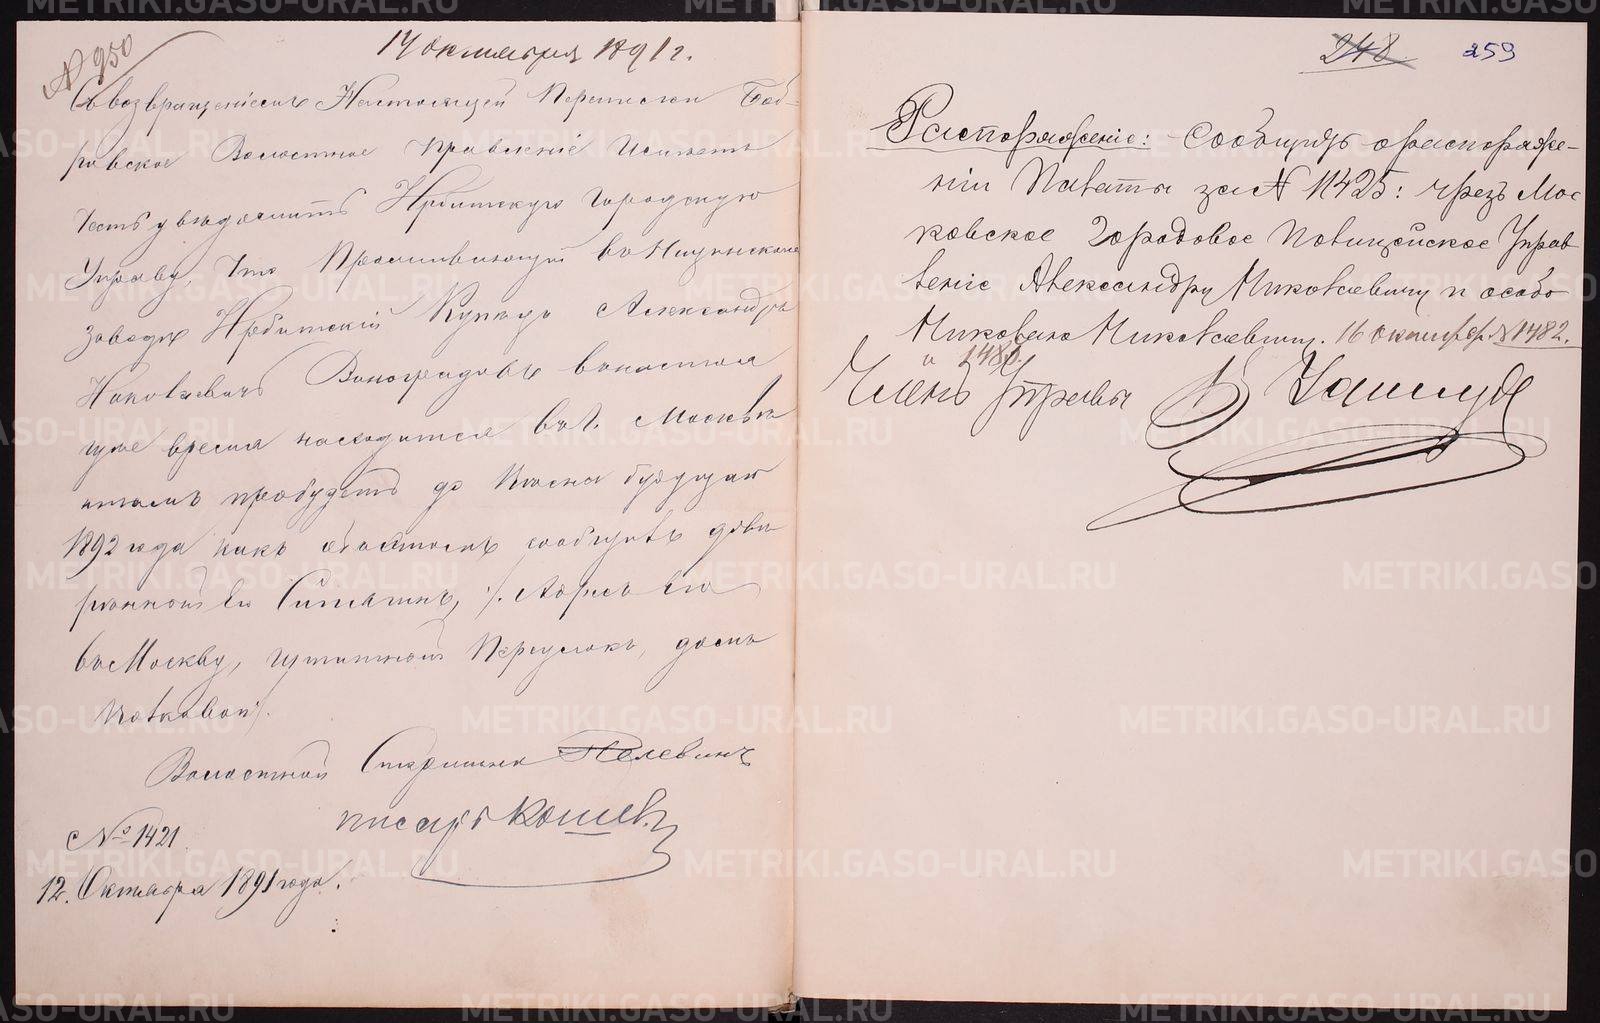 № 950
14 октября 1891 г.
Съ возвращеніемъ Настоящей Переписки Боб-
ровское Волостное Правленіе Имѣетъ
Честь увѣдомить Ирбитскую Городскую
Управу, Что Проживающій въ Ницинскомъ
Заводѣ Ирбитскій Купецъ Александръ
Николаевичъ Виноградовъ внастоя
щее время находится въ г. Москвѣ и
тамъ пробудетъ до Весны будущаго
1892 года какъ обэтомъ сообщилъ довѣ
ренной его /. Адресъ его
въ Москву, Переулокъ, домъ
Волковой/.
Волостной Старшина Пелевинъ
писарь Кошев
№ 1421
12. Октября 1891 года.
248 259
Распоряженіе: Сообщить о распоряже-
ніи Палаты за № 11425: чрезъ Мос
ковское Городовое Полицейское Управ
леніе Александру Николаевичу и особо
Николаю Николаевичу. 16 октября № 1482.
и 1480
Членъ Управы